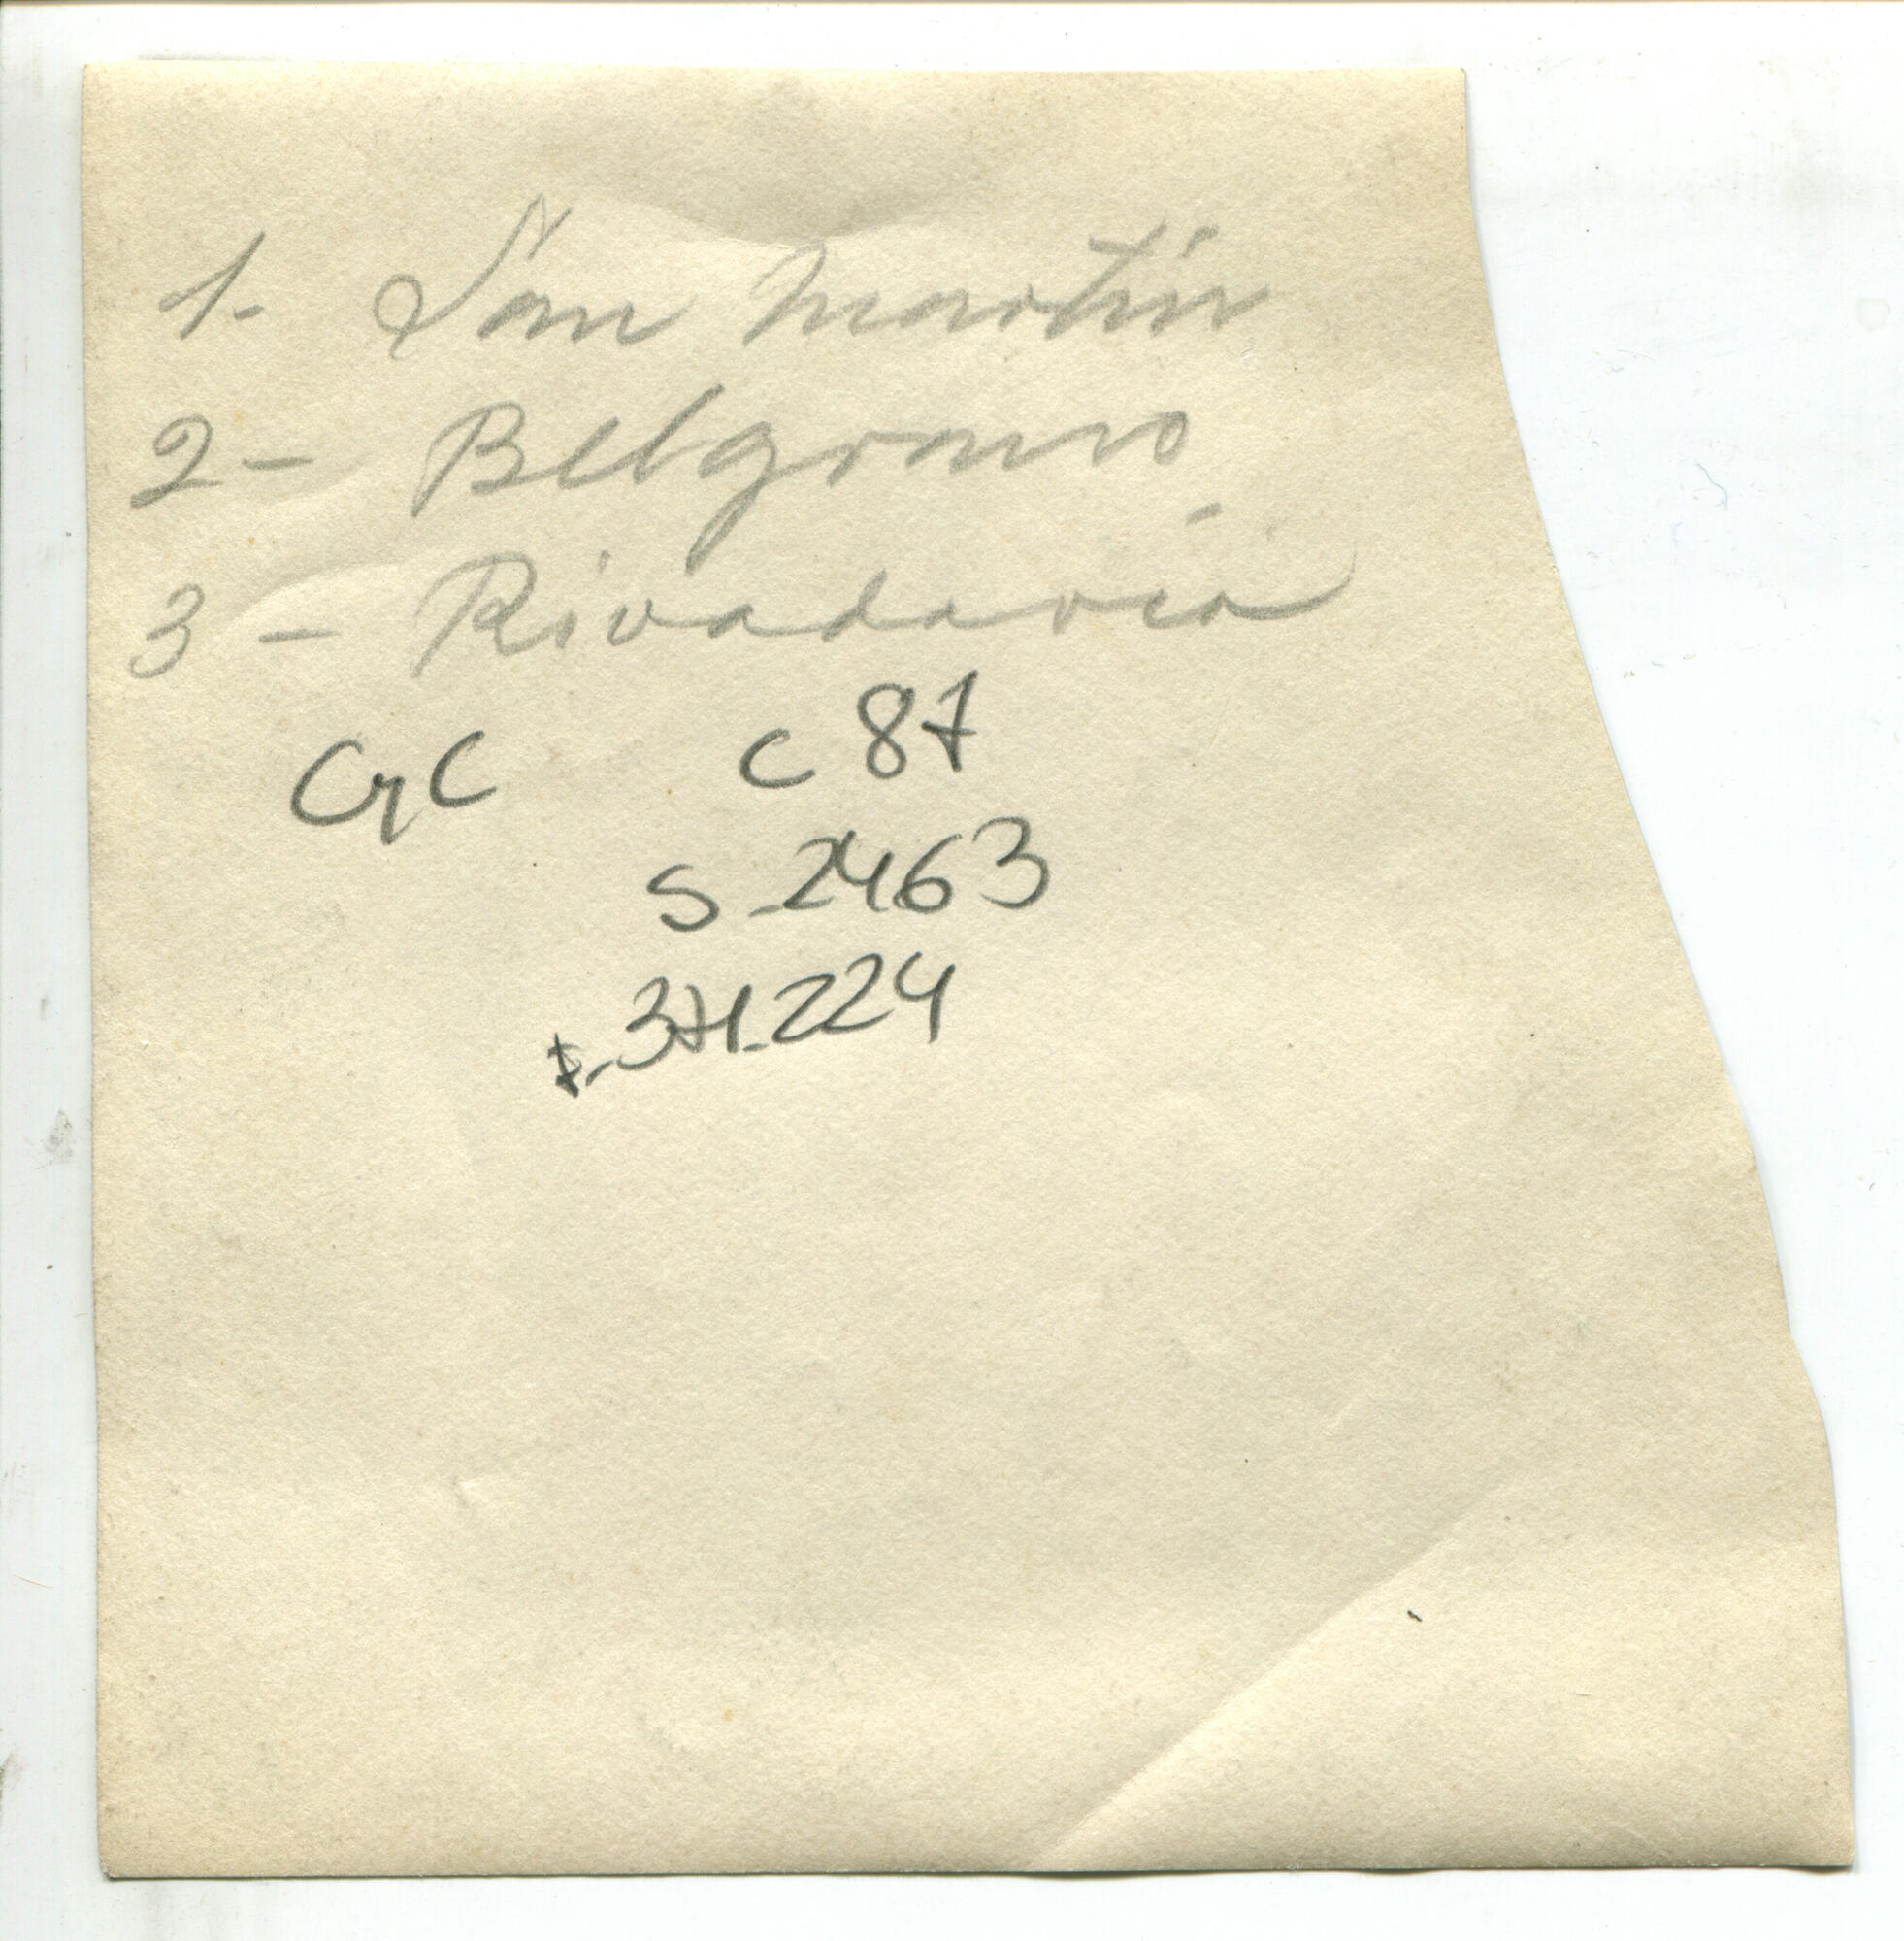 1- San Martín
2- Belgrano
3- Rivadavia
CyC C 87
S_2463
I_371.224